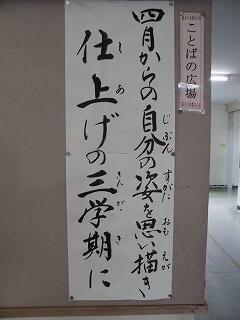 ことばの広場
四月からの自分の姿を思い描き
じぶん すがた おも えが
仕上げの三学期に
しあ さんがっき